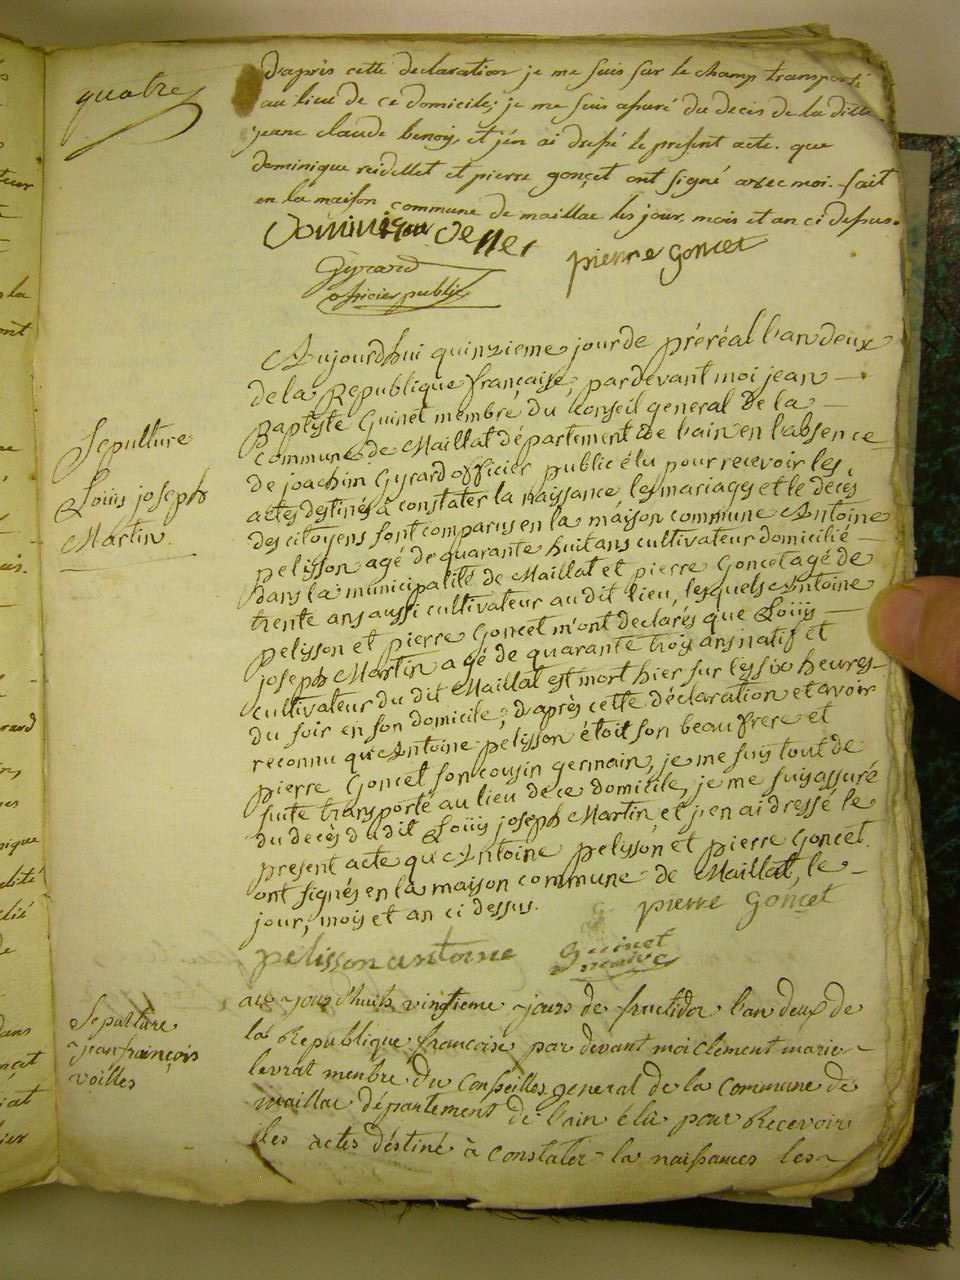 quatre
d'après cette declaration je me suis sur le champ transporté
au lieu de ce domicile; je me suis assuré du deces de la ditte
jeane claude benoy, et j'en ai dressé le present acte. que
dominique reidellet et pierre gonçet ont signé avec moi. fait
en la maison commune de maillac les jour, mois et an ci dessus.
Dominique
pierre goncet
Gyrard
officier public
Sepulture
Loüis joseph
Martin.
Aujourdhui quinzieme jour de préréal l'an deux
de la Republique française, pardevant moi jean
Baptiste Guinet membre du Conseil general de la
commune de Maillat département de l'ain en l'absence
de joachim Gyrard officier public élu pour recevoir les
actes destinés à constater la naissance, les mariages et le décès
des citoyens sont comparus en la maison commune Antoine
pelisson agé de quarante huit ans cultivateur domicilié
dans la municipalité de Maillat et pierre Goncet agé de
trente ans aussi cultivateur au dit lieu, lesquels Antoine
pelisson et pierre Goncet m'ont declarés que Loüis
joseph Martin agé de quarante trois ans natif et
cultivateur du dit Maillat est mort hier sur les six heures
du soir en son domicile; d'après cette déclaration et avoir
reconnu qu'Antoine pelisson étoit son beau frere et
pierre Goncet son cousin germain, je me suis tout de
suite transporté au lieu de ce domicile, je me suis assuré
du decès du dit Loüis joseph Martin et j'en ai dressé le
present acte qu'Antoine pelisson et pierre Goncet
ont signés en la maison commune de Maillat, le
jour, mois et an ci dessus.
pierre Goncet
pelisson antoine
guinet
Sepulture
jean françois
voilles
aujourd'huit vingtieme jours de fructidor l'an deux de
la Republique francoise par devant moi clement marie
levrat menbre du Conseilles general de la commune de
maillac département de l'ain élû pour Recevoir
les actes déstiné à constater la naissances les